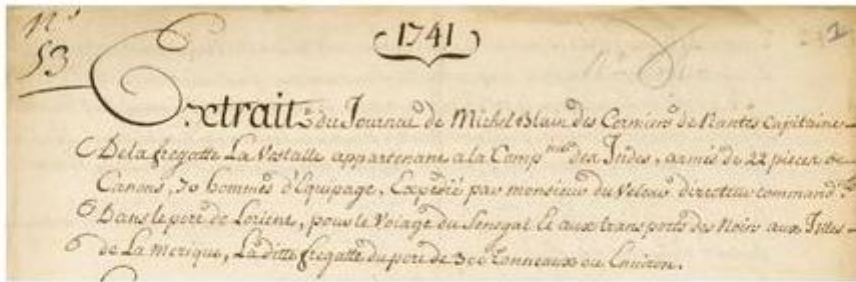 N°
53
1741
Extrait du Journal de Michel Blain des Corniers de Nantes Capitaine
De la fregatte La Vestalle appartenant a la Comp.nie des Indes, armée de 22 pieces de
Canons, 70 hommes d'Equipage, Expedié par monsieur du Velaer directeur command.t
Dans le port de Lorient, pour le Voiage du Senegal et aux transports des Noirs aux Isles
de La merique, La ditte fregatte du port de 300 Tonneaux ou Environ.